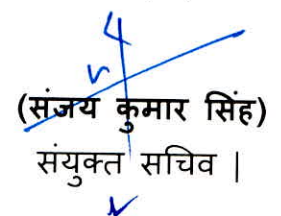 (संजय कुमार सिंह)
संयुक्त सचिव |